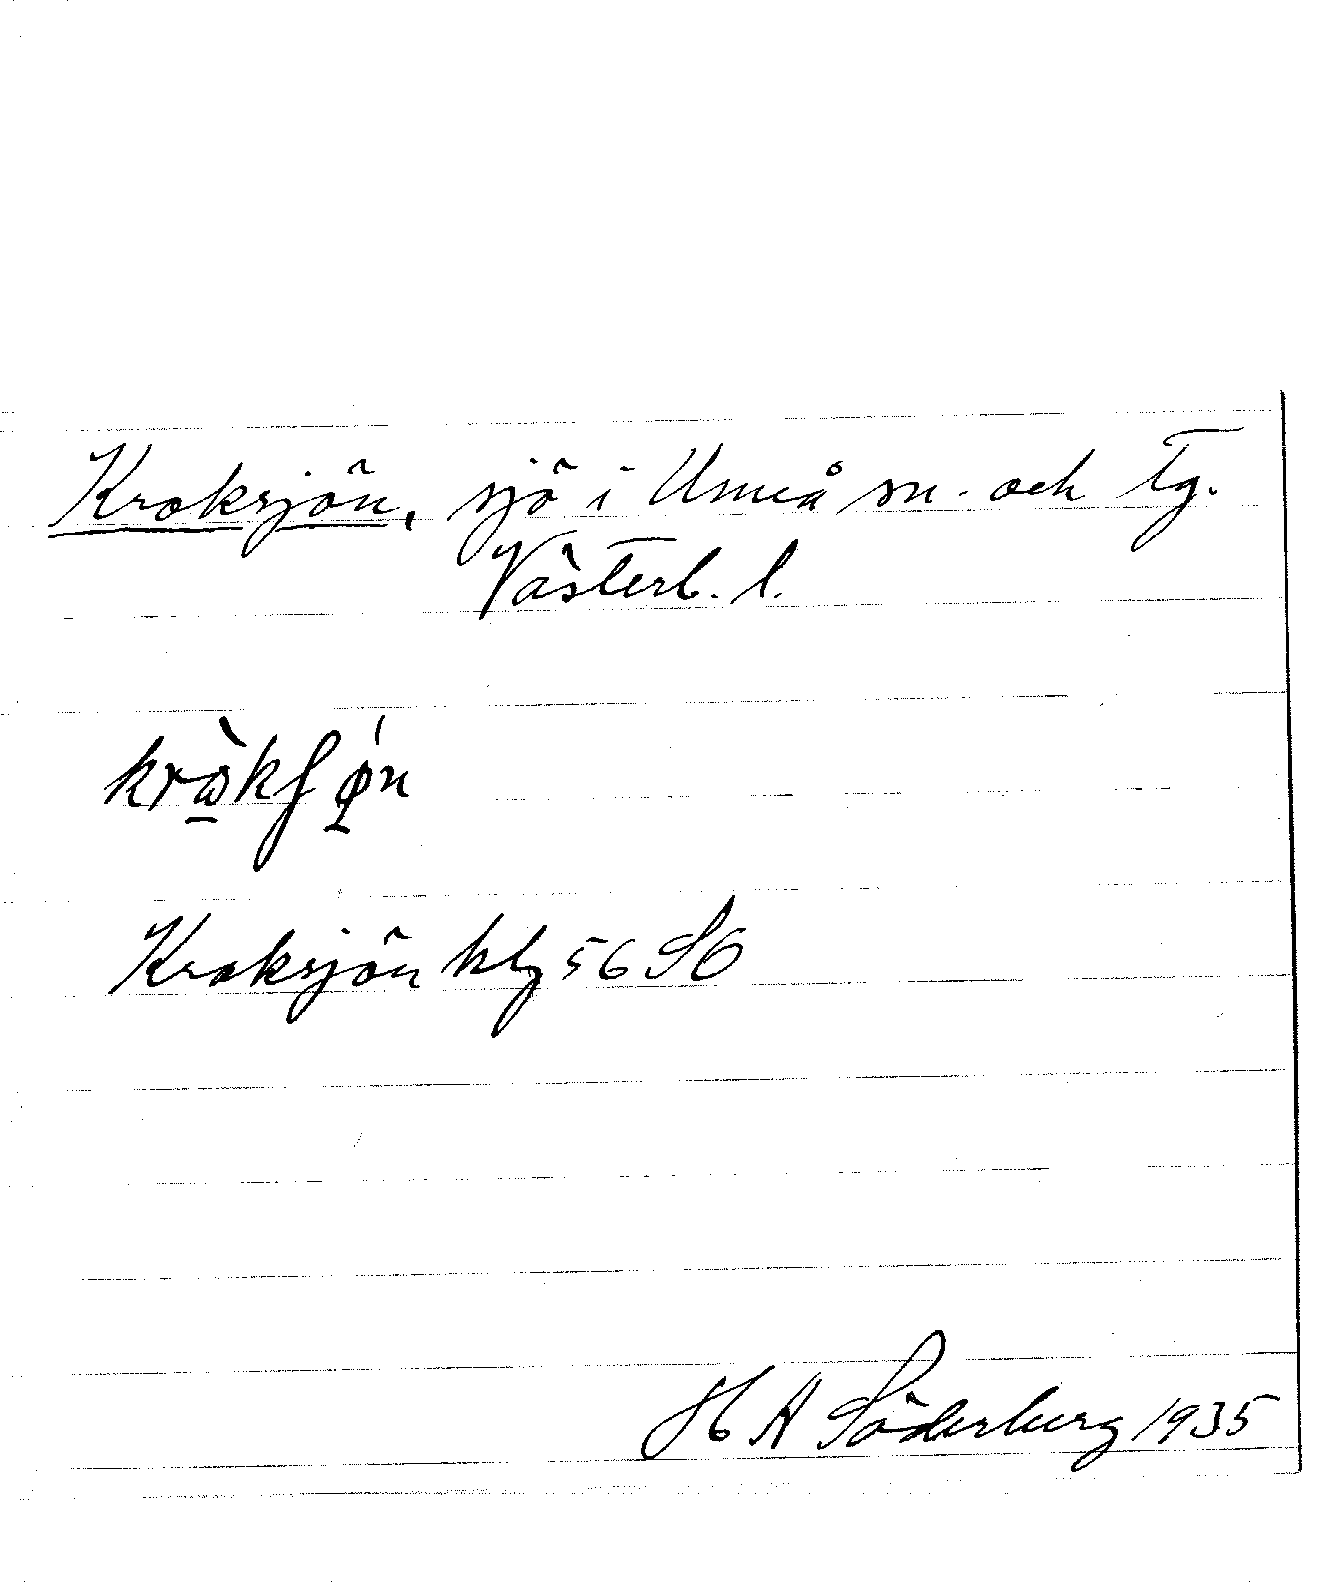 Kroksjön, sjö i Umeå sn. och tg.
Västerb. l.
krὼ̱kʃǿ̱n
Kroksjön hlg 56 SO
H A Söderberg 1935